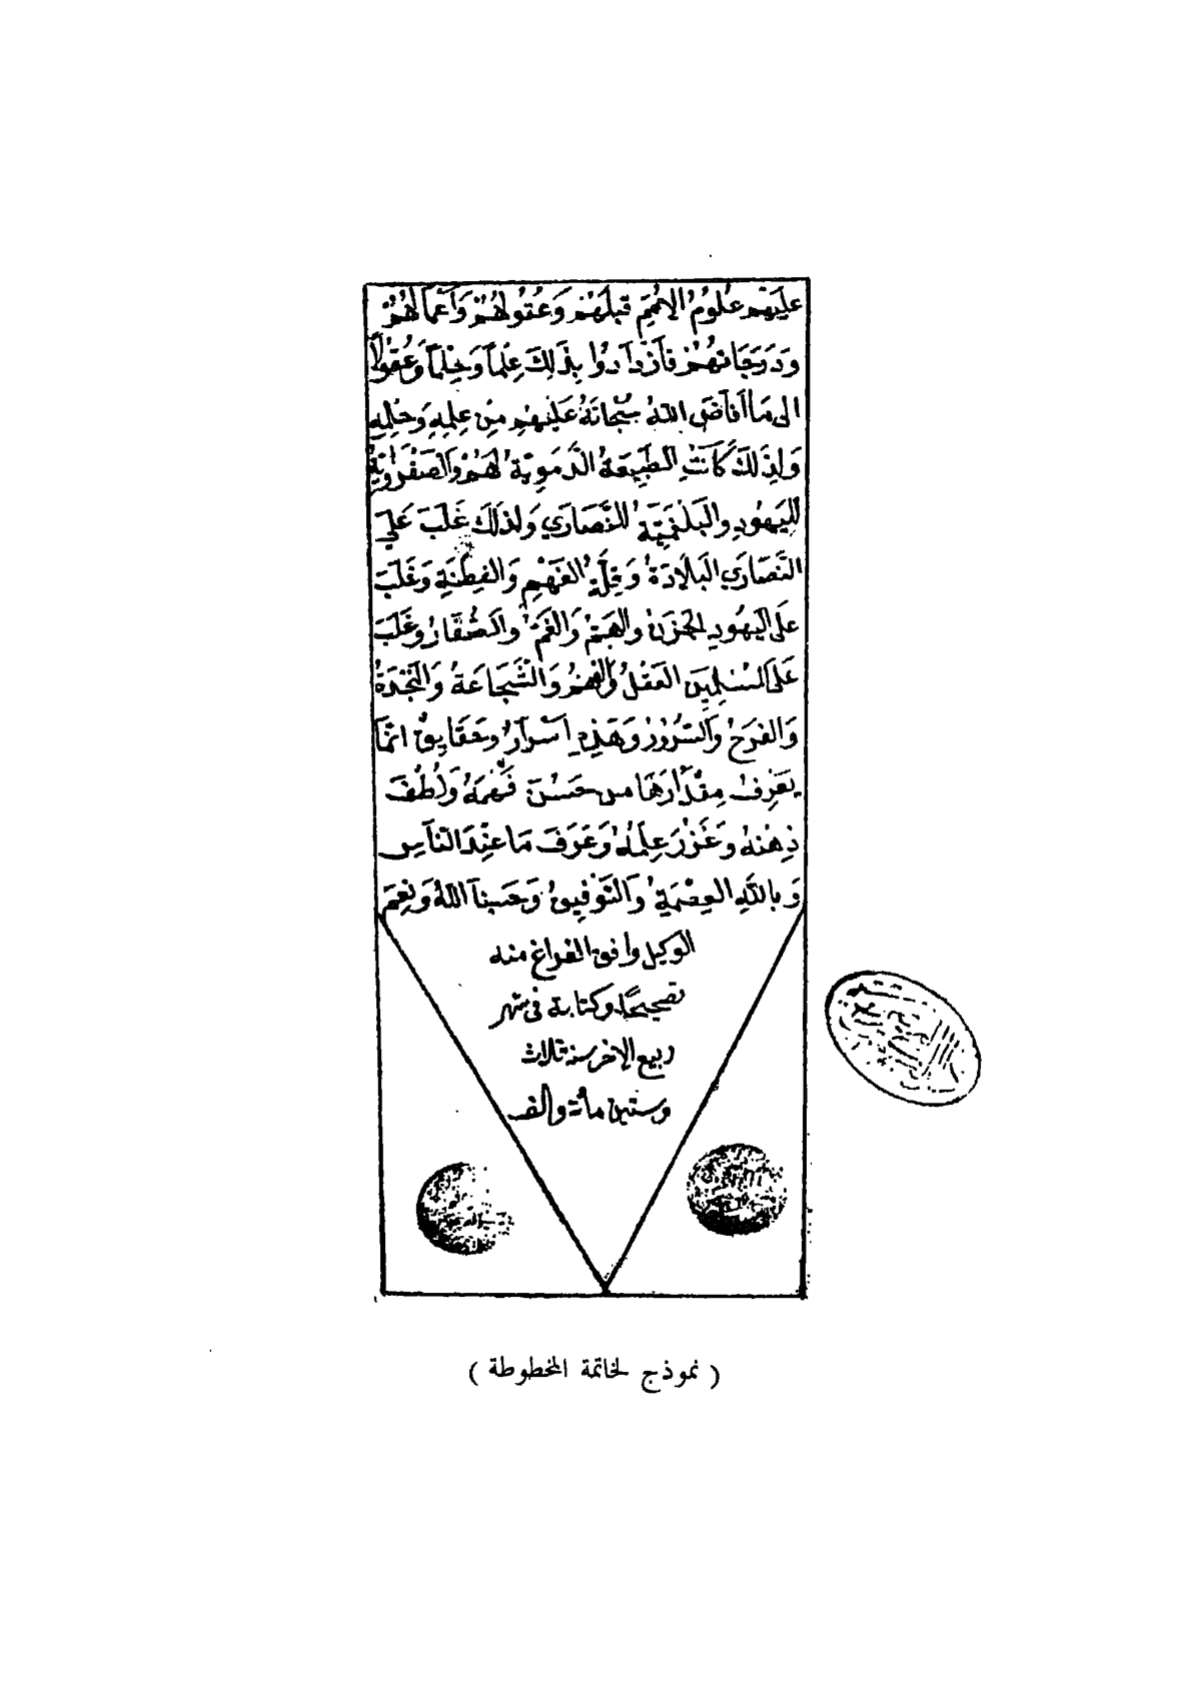 عَلَيْهِم عُلومُ الاُمَمِ قبلَهُم وَعُقُولُهُمْ وَاَعْمَالُهُمْ
وَدَرَجَاتهُمْ فَازدَادُوا بذَلِكَ عِلْماً وَحِلْماً وَعُقُولاً
الى مَا اَفَاضَ اللهُ سُبْحانَهُ عَلَيْهِم مِن عِلمِهِ وَحِلمِهِ
وَلِذَلِكَ كَانَتِ الطَّبِيعَةُ الدَّمَوِيَّةُ لَهُمْ وَالصَّفْرَاوِيَّةُ
لِليَهُودِ وَالبَلغَمِيَّةُ لِلنَّصَارَي وَلِذَلكَ غَلَبَ عَلَي
النَّصَارَي البَلاَدَةُ وَقِلَّةُ الفَهْمِ وَالفِطْنَةِ وَغَلَبَ
عَلَى اليَهُودِ الحُزنُ والهَمُّ وَالغَمُّ والصَّغَارُ وغَلَبَ
عَلَى المُسْلِمِينَ العَقْلُ وَالفَهْمُ وَالشَّجَاعَةُ وَالنَّجْدَةُ
وَالفَرَحُ وَالسُّرُورُ وَهَذِهِ اَسْرَارٌ وحَقَايِقُ انَّمَا
يَعْرِفُ مِقْدَارَهَا من حَسُنَ فَهْمُهُ وَلُطُفَ
ذِهْنهُ وَغَزُرَ عِلمُهُ وَعَرَفَ مَا عِنْدَ النَّاسِ
وَبِاللهِ العِصْمَةُ وَالتَّوْفِيقُ وَحَسبنا اللهُ وَنِعمَ
الوكيل وافق الفراغ منه
تصحيحًا وكتابة في شهر
ربيع الاخر سنة ثلاث
وستين مائة والف
( نموذج لخاتمة المخطوطة )